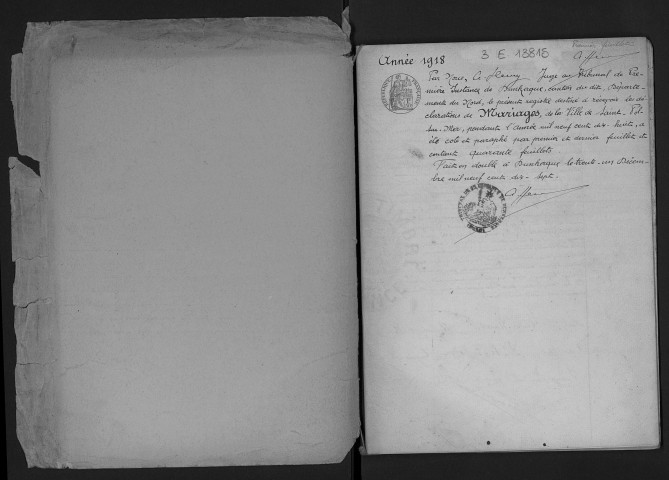 Année 1918
3 E 13816
Par Nous, A. Juge au Tribunal de Pre-
mière Instance de Dunkerque, Département
du Nord, le présent registre destiné à recevoir les dé-
clarations de Mariages, de la Ville de Saint-Pol-
sur-Mer, pendant l'Année mil neuf cent dix-huit, a
été coté et paraphé par premier et dernier feuillet et
contient quarante feuillets.
Fait en double à Dunkerque le trente-un Décem-
bre mil neuf cent dix-sept.